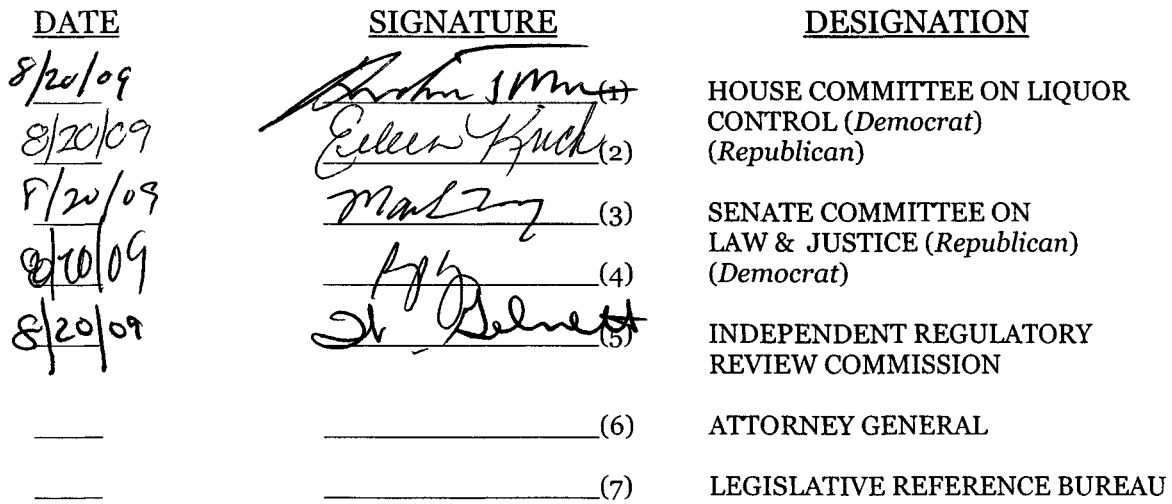 DATE SIGNATURE DESIGNATION
8/20/09 (1) HOUSE COMMITTEE ON LIQUOR
CONTROL (Democrat)
8/20/09 Eileen (2) (Republican)
8/20/09 (3) SENATE COMMITTEE ON
LAW & JUSTICE (Republican)
8/20/09 (4) (Democrat)
8/20/09 (5) INDEPENDENT REGULATORY
REVIEW COMMISSION
(6) ATTORNEY GENERAL
(7) LEGISLATIVE REFERENCE BUREAU